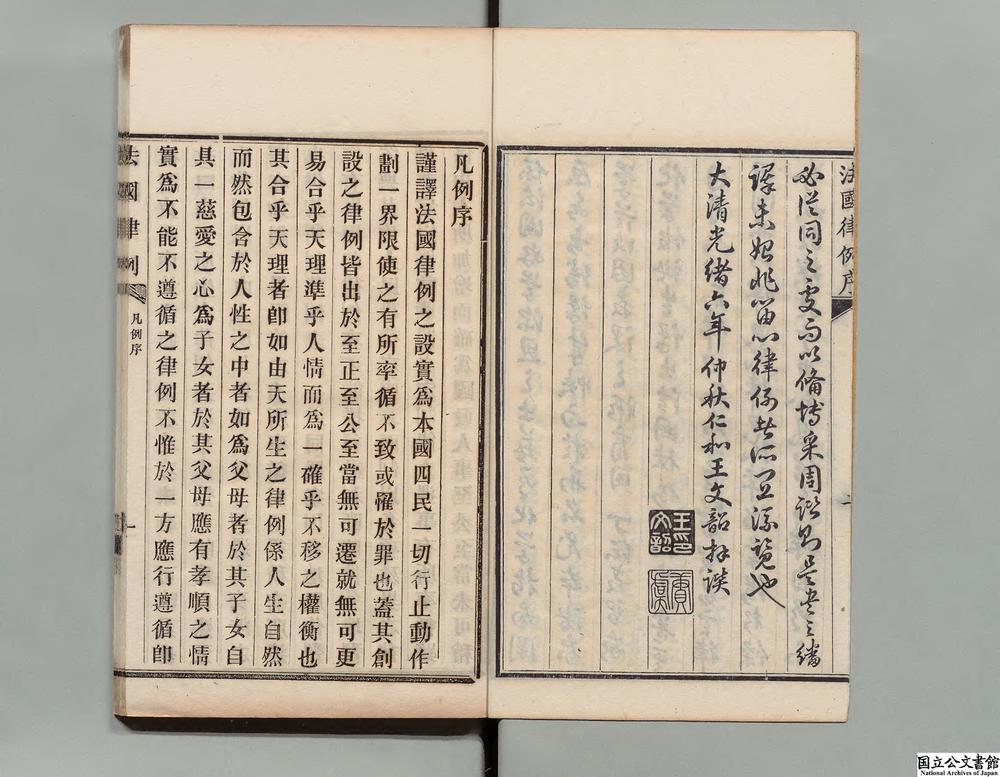 法國律例序
必從同之要而以備博采周諮則是書之繙
譯未始非留心律例者所宜流覽也
大清光緒六年仲秋仁和王文韶拜譔
一
王文韶印
夔
凡例序
謹譯法國律例之設實為本國四民一切行止動作
劃一界限使之有所率循不致或罹於罪也蓋其創
設之律例皆出於至正至公至當無可遷就無可更
易合乎天理準乎人情而為一確乎不移之權衡也
其合乎天理者卽如由天所生之律例係人生自然
而然包含於人性之中者如為父母者於其子女自
具一慈愛之心為子女者於其父母應有孝順之情
實為不能不遵循之律例不惟於一方應行遵循卽
法國律例
凡例序
一
国立公文書館
National Archives of Japan